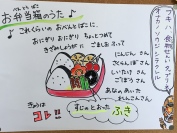 べんとうばこ
♪お弁当箱のうた♪
これくらいの おべんとばこに
おにぎり おにぎり ちょっとつめて
きざみしょうがに ごましおふって
にんじんさん
さくらんぼさん
しいたけさん
ごぼうさん
あなのあいた
れんこんさん
すじのとおった ふき
コレ!!